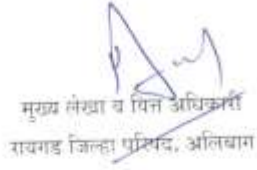 मुख्य लेखा व वित्त अधिकारी
रायगड जिल्हा परिषद, अलिबाग